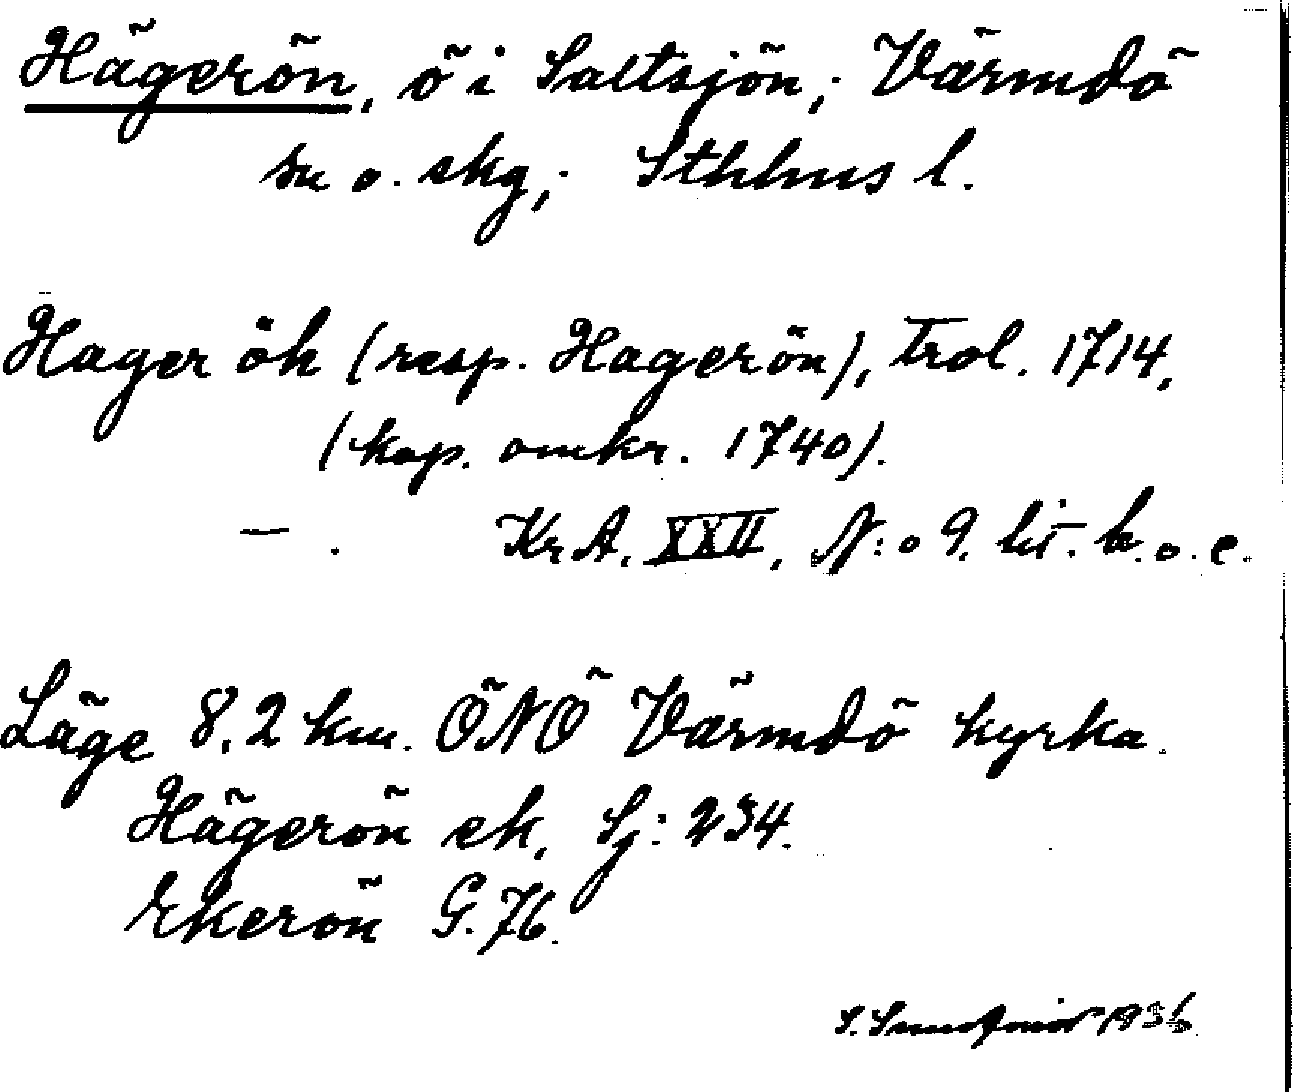 Hägerön, ö i Saltsjön; Värmdö
sn o. skg; Sthlms l.
Hager öh (resp. Hagerön), trol. 1714,
(kop. omkr. 1740).
— . KrA, XXII, N:o 9. lit. b. o. c.
Läge 8,2 km. ÖNÖ Värmdö kyrka.
Hägerön ek, Sj: 234.
Ekerön G. 76.
1936